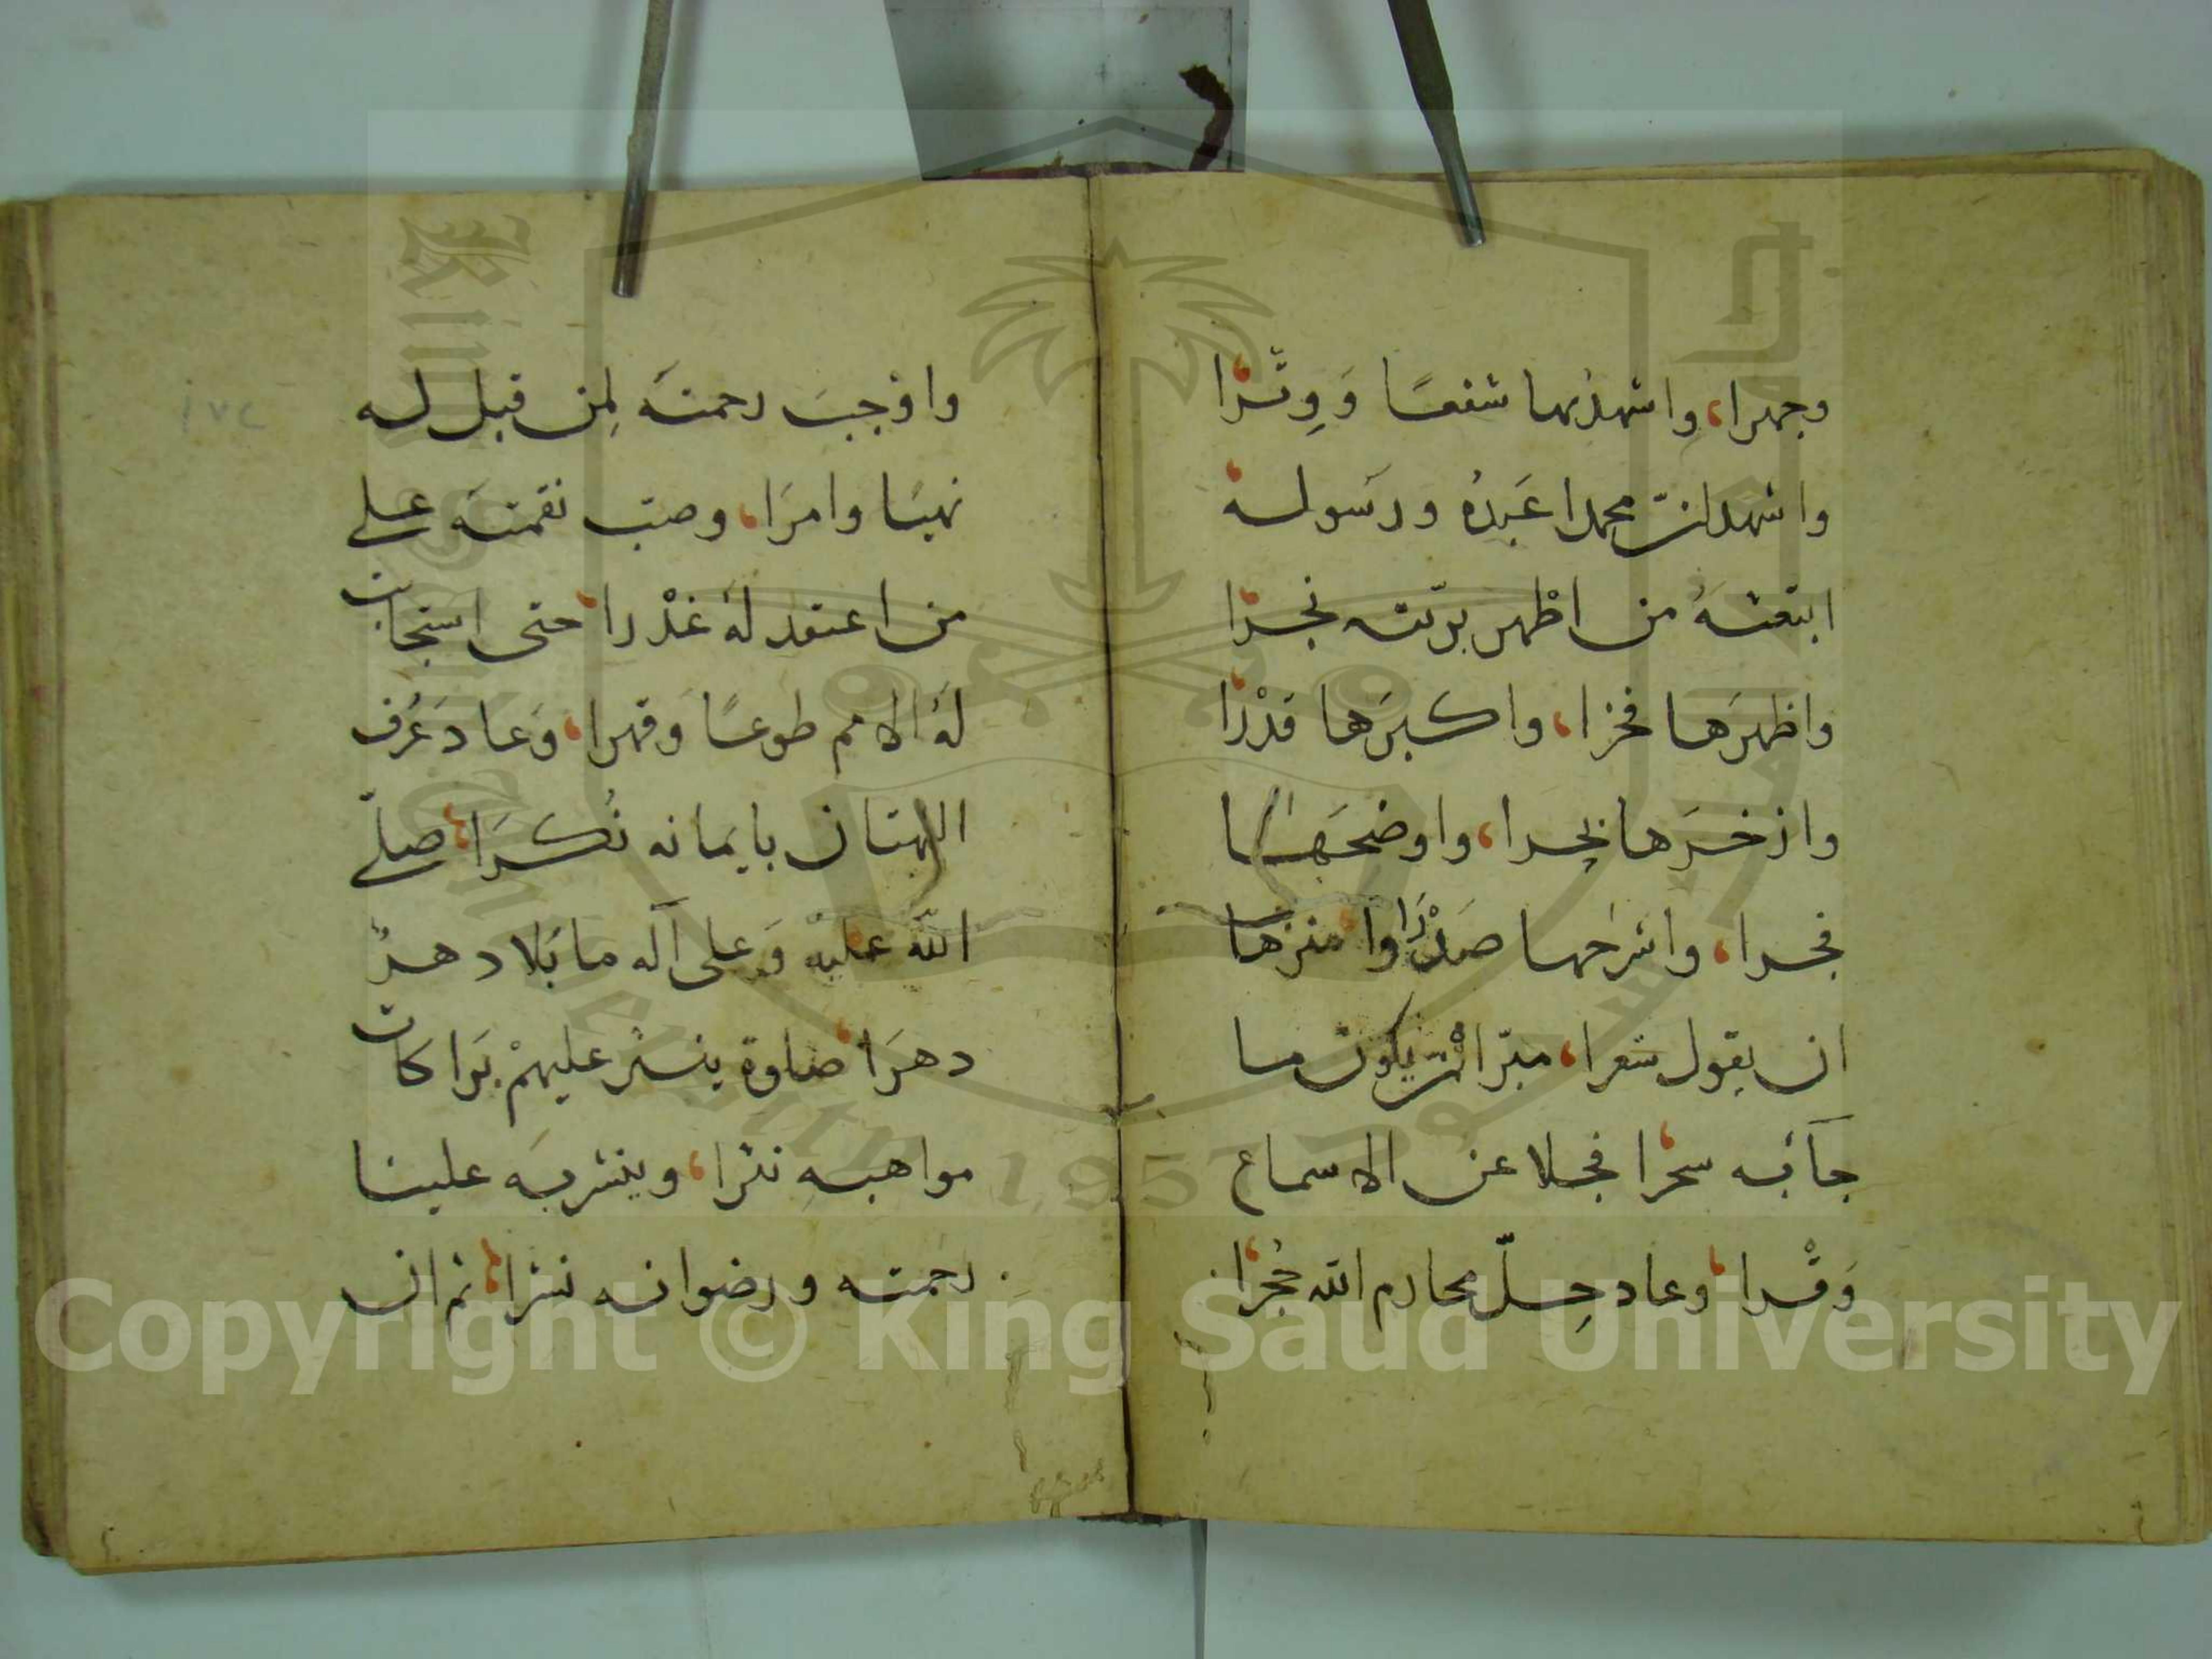 وجهرا، واشهد بها شفعًا وَوِتْرًا
واشهد انّ محمدا عَبدُه ورَسوله
ابتعثهُ من اظهر بريّته نجرًا
واظهرَها فخرا، واكبرَها قدْرًا
واذخرَها بحرا، واوضحَها
فجرا، واشرحها صَدْرًا وا منزها
ان يقول شعرا، مبرّا انْ يكون ما
جآبه سحرًا فجلا عن الاسماع
وَقْرا، وعاد حِلّ محارم الله حُجرًا
واوْجبَ رحمتَه لِمن قبل له
نهيًا وامرًا، وصبّ نقمتَه على
من اعتقد لهُ غدْرا، حتى استجابت
لهُ الامم طوعًا وقهرا، وَعادَ عُرْف
البهتان بايمانه نُكرًا، صلّى
الله عليْه وَعلى آله ما تَلا دهرٌ
دهرَا، صلوة ينثر عليهمْ بَراكات
مواهبهِ نثرا، وينشر بهَ علينا
رحمته ورضوانه نشرا، ثم ان
١٧٤
Copyright © King Saud University
King Saud University
جامعة الملك سعود
1957